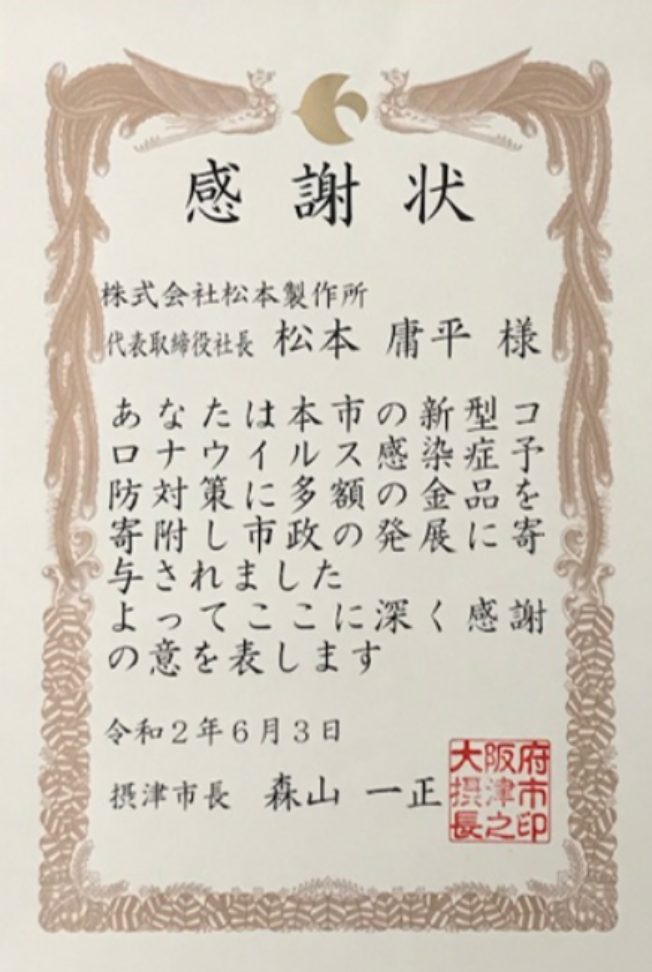 感謝状
株式会社松本製作所
代表取締役社長 松本 庸平 様
あなたは本市の新型コ
ロナウイルス感染症予
防対策に多額の金品を
寄附し市政の発展に寄
与されました
よってここに深く感謝
の意を表します
令和2年6月3日
摂津市長 森山 一正
大阪府
摂津市
長之印